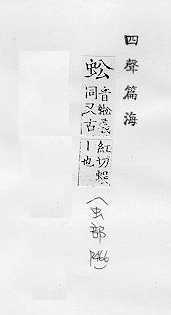 四聲篇海
蚣
音蚣義
同又古
紅切蜈
丨也
(虫部
P.466)